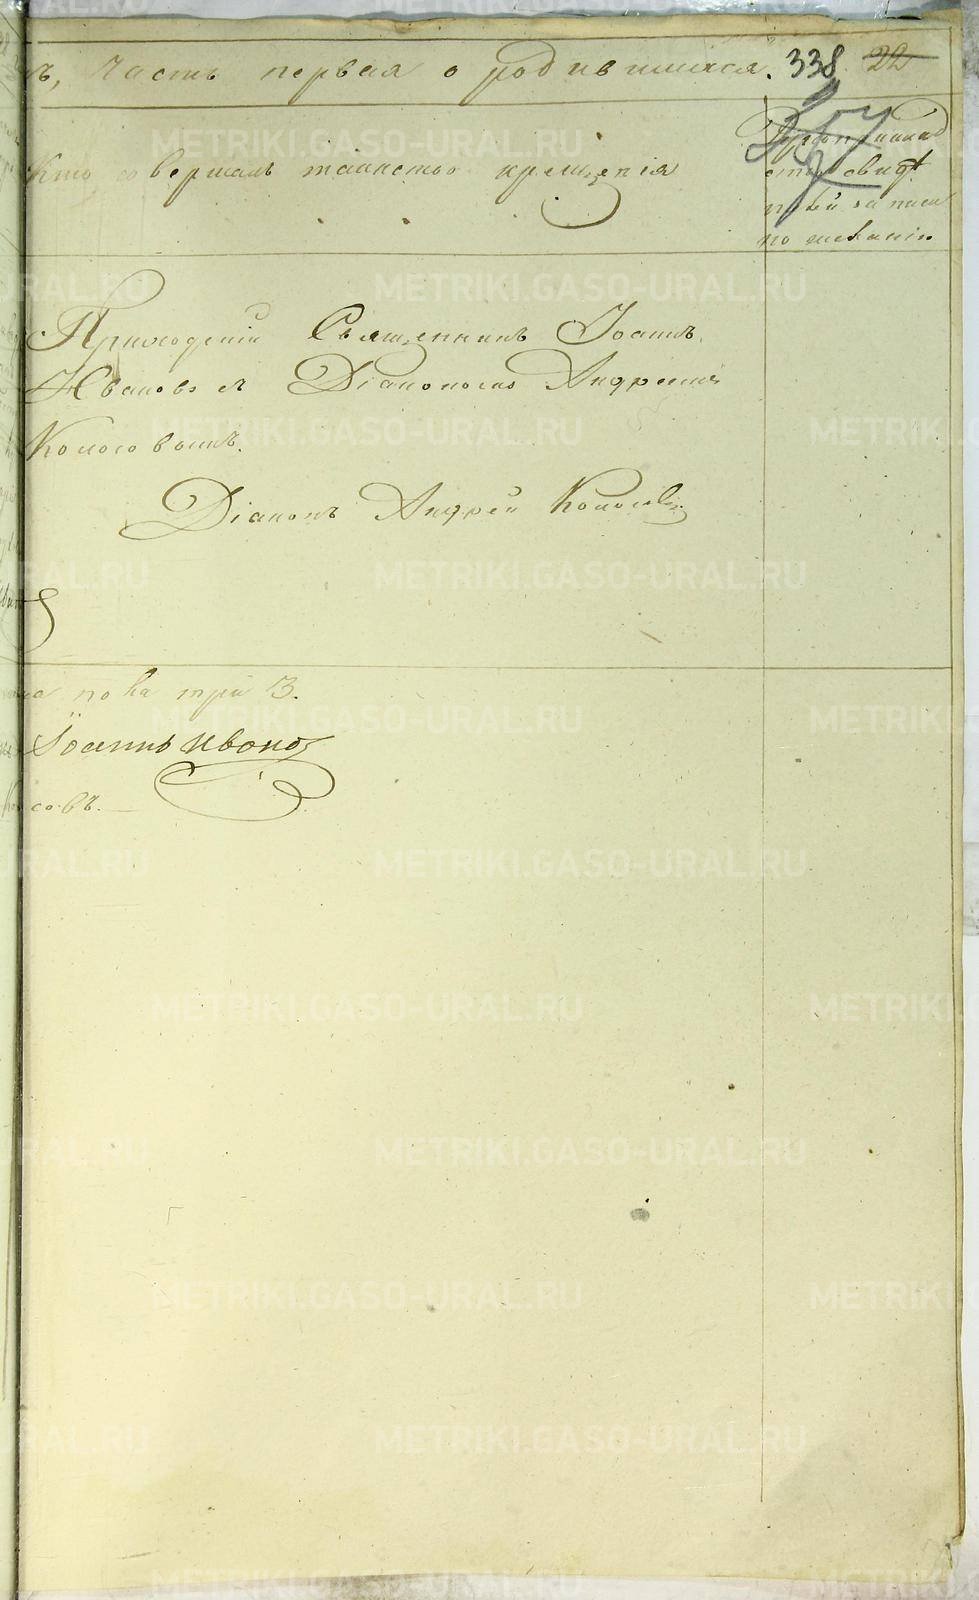 ъ, Часть первая о родившихся. 338 22
Кто совершалъ таинство крещенія
Рукоприкладство свидѣтелей записи по желанію
Приходскій Священникъ Іоаннъ
Ивановъ съ Діакономъ Андреемъ
Колосовымъ.
Діаконъ Андрей Колосовъ
три 3.
Іоаннъ Ивановъ
совъ.